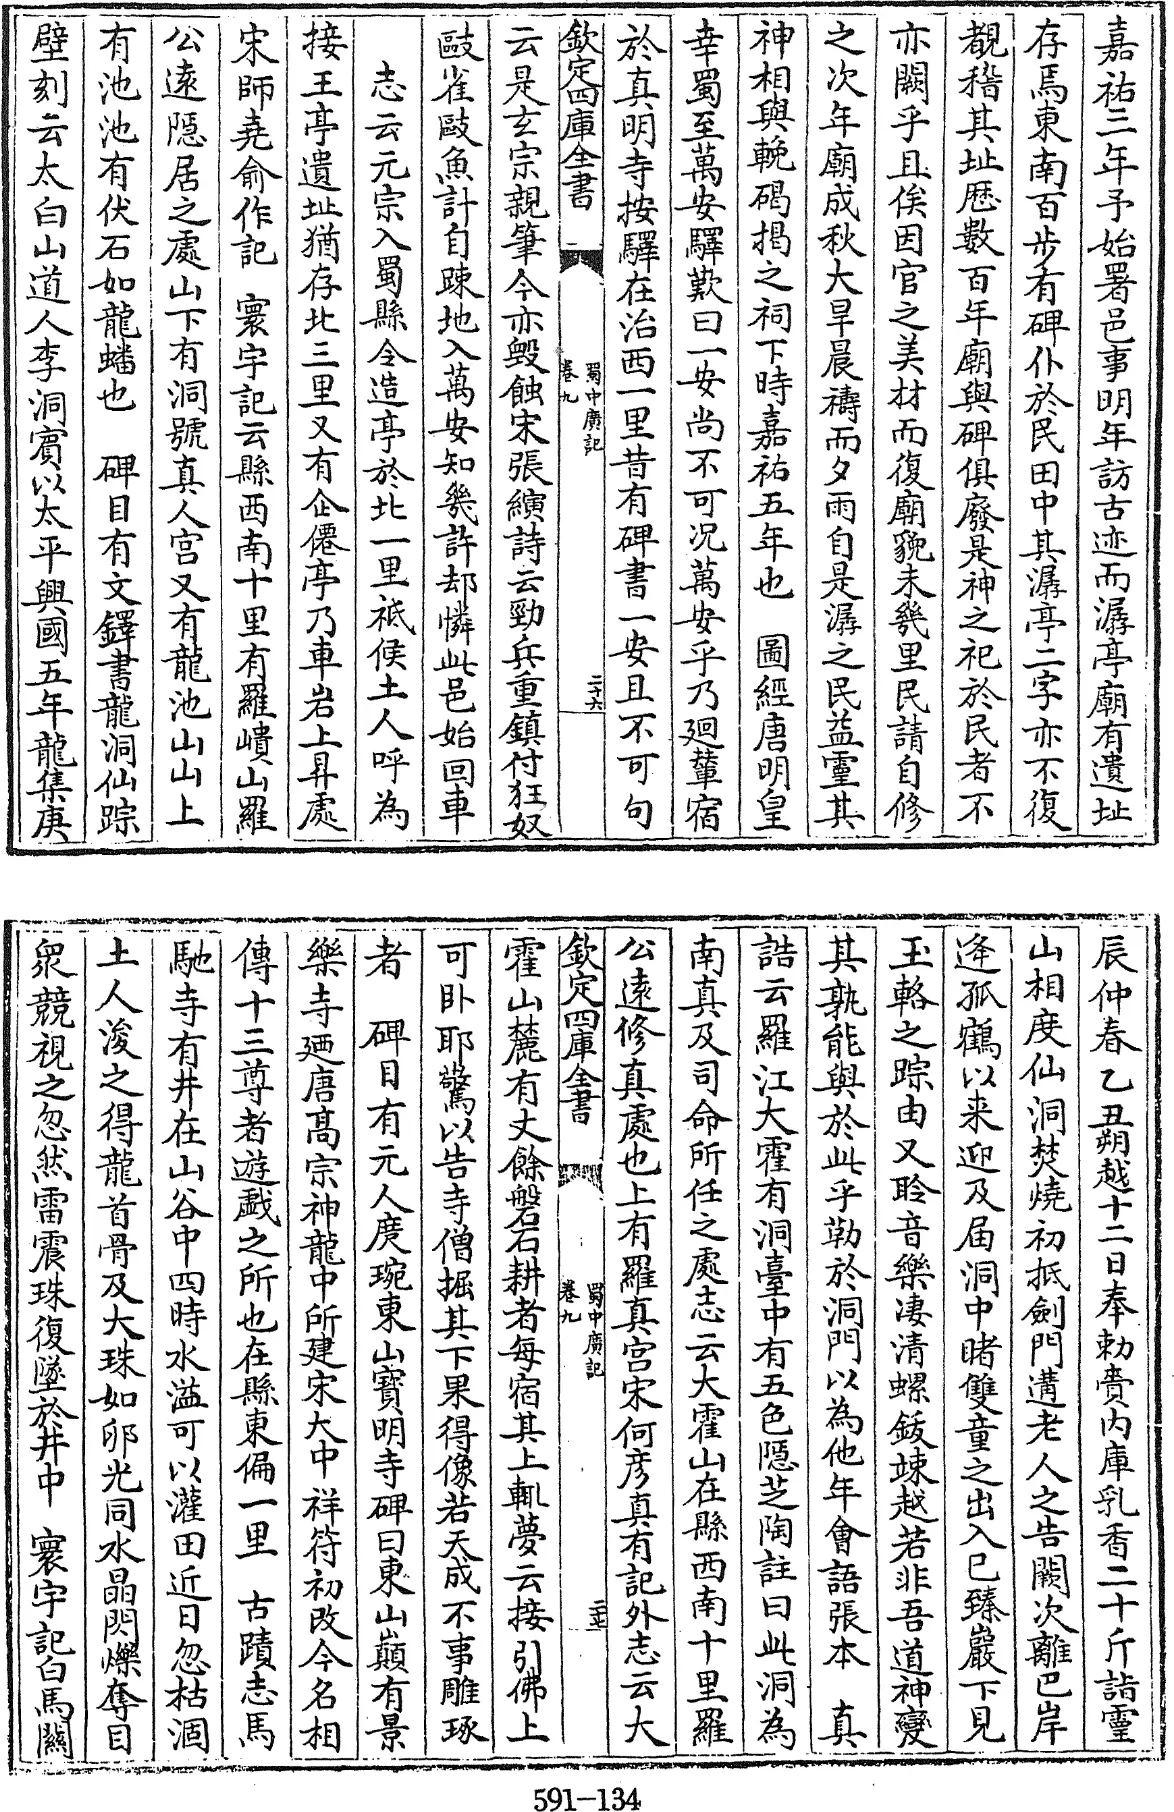 嘉祐三年予始署邑事明年訪古迹而潺亭廟有遺址
存焉東南百步有碑仆於民田中其潺亭二字亦不復
覩稽其址歷數百年廟與碑俱廢是神之祀於民者不
亦闕乎且俟因官之美材而復廟貌未幾里民請自修
之次年廟成秋大旱晨禱而夕雨自是潺之民益靈其
神相與輓碣揭之祠下時嘉祐五年也　圖經唐明皇
幸蜀至萬安驛歎曰一安尚不可况萬安乎乃廻輦宿
於真明寺按驛在治西一里昔有碑書一安且不可句
欽定四庫全書　蜀中廣記卷九　二十六
云是玄宗親筆今亦毀蝕宋張縯詩云勁兵重鎮付狂奴
敺雀敺魚計自疎地入萬安知幾許却憐此邑始回車
志云元宗入蜀縣令造亭於北一里祗候土人呼為
接王亭遺址猶存北三里又有企僊亭乃車岩上昇處
宋師堯俞作記　寰宇記云縣西南十里有羅璝山羅
公遠隱居之處山下有洞號真人宫又有龍池山山上
有池池有伏石如龍蟠也　碑目有文鐸書龍洞仙踪
壁刻云太白山道人李洞賓以太平興國五年龍集庚
辰仲春乙丑朔越十二日奉勅賫内庫乳香二十斤詣靈
山相度仙洞焚燒初抵劍門遘老人之告闕次離巴岸
逄孤鶴以来迎及届洞中睹雙童之出入已臻巖下見
玉輅之踪由又聆音樂凄清螺鈸竦越若非吾道神變
其孰能與於此乎勒於洞門以為他年會語張本　真
誥云羅江大霍有洞臺中有五色隱芝陶註曰此洞為
南真及司命所任之處志云大霍山在縣西南十里羅
公遠修真處也上有羅真宫宋何彦真有記外志云大
欽定四庫全書　蜀中廣記卷九　二十七
霍山麓有丈餘磐石耕者每宿其上輒夢云接引佛上
可卧耶驚以告寺僧掘其下果得像若天成不事雕琢
者　碑目有元人庹琬東山寶明寺碑曰東山巔有景
樂寺廼唐髙宗神龍中所建宋大中祥符初改今名相
傳十三尊者遊戲之所也在縣東偏一里　古蹟志馬
馳寺有井在山谷中四時水溢可以灌田近日忽枯涸
土人浚之得龍首骨及大珠如卵光同水晶閃爍奪目
衆競視之忽然雷震珠復墜於井中　寰宇記白馬關
591-134